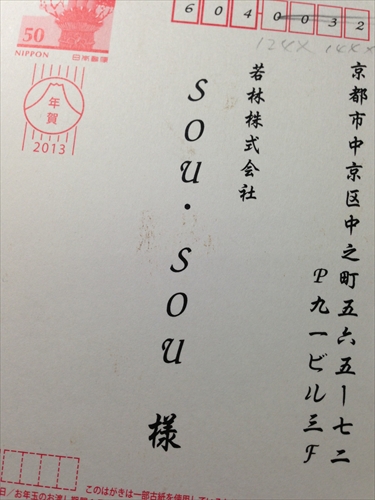 50
NIPPON
日本郵便
年賀
2013
6040032
124× 144×
京都市中京区中之町五六五ー七二
P九一ビル三F
若林株式会社
SOU・SOU 様
このはがきは一部古紙を使用している